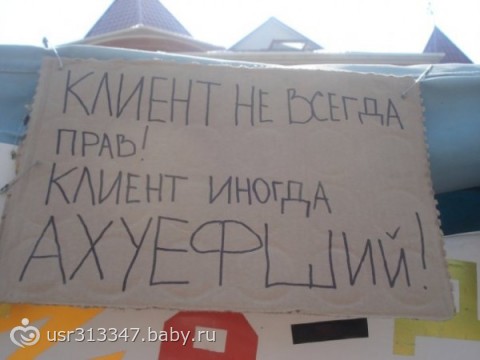 КЛИЕНТ НЕ ВСЕГДА
ПРАВ!
КЛИЕНТ ИНОГДА
АХУЕФШИЙ!
usr313347.baby.ru